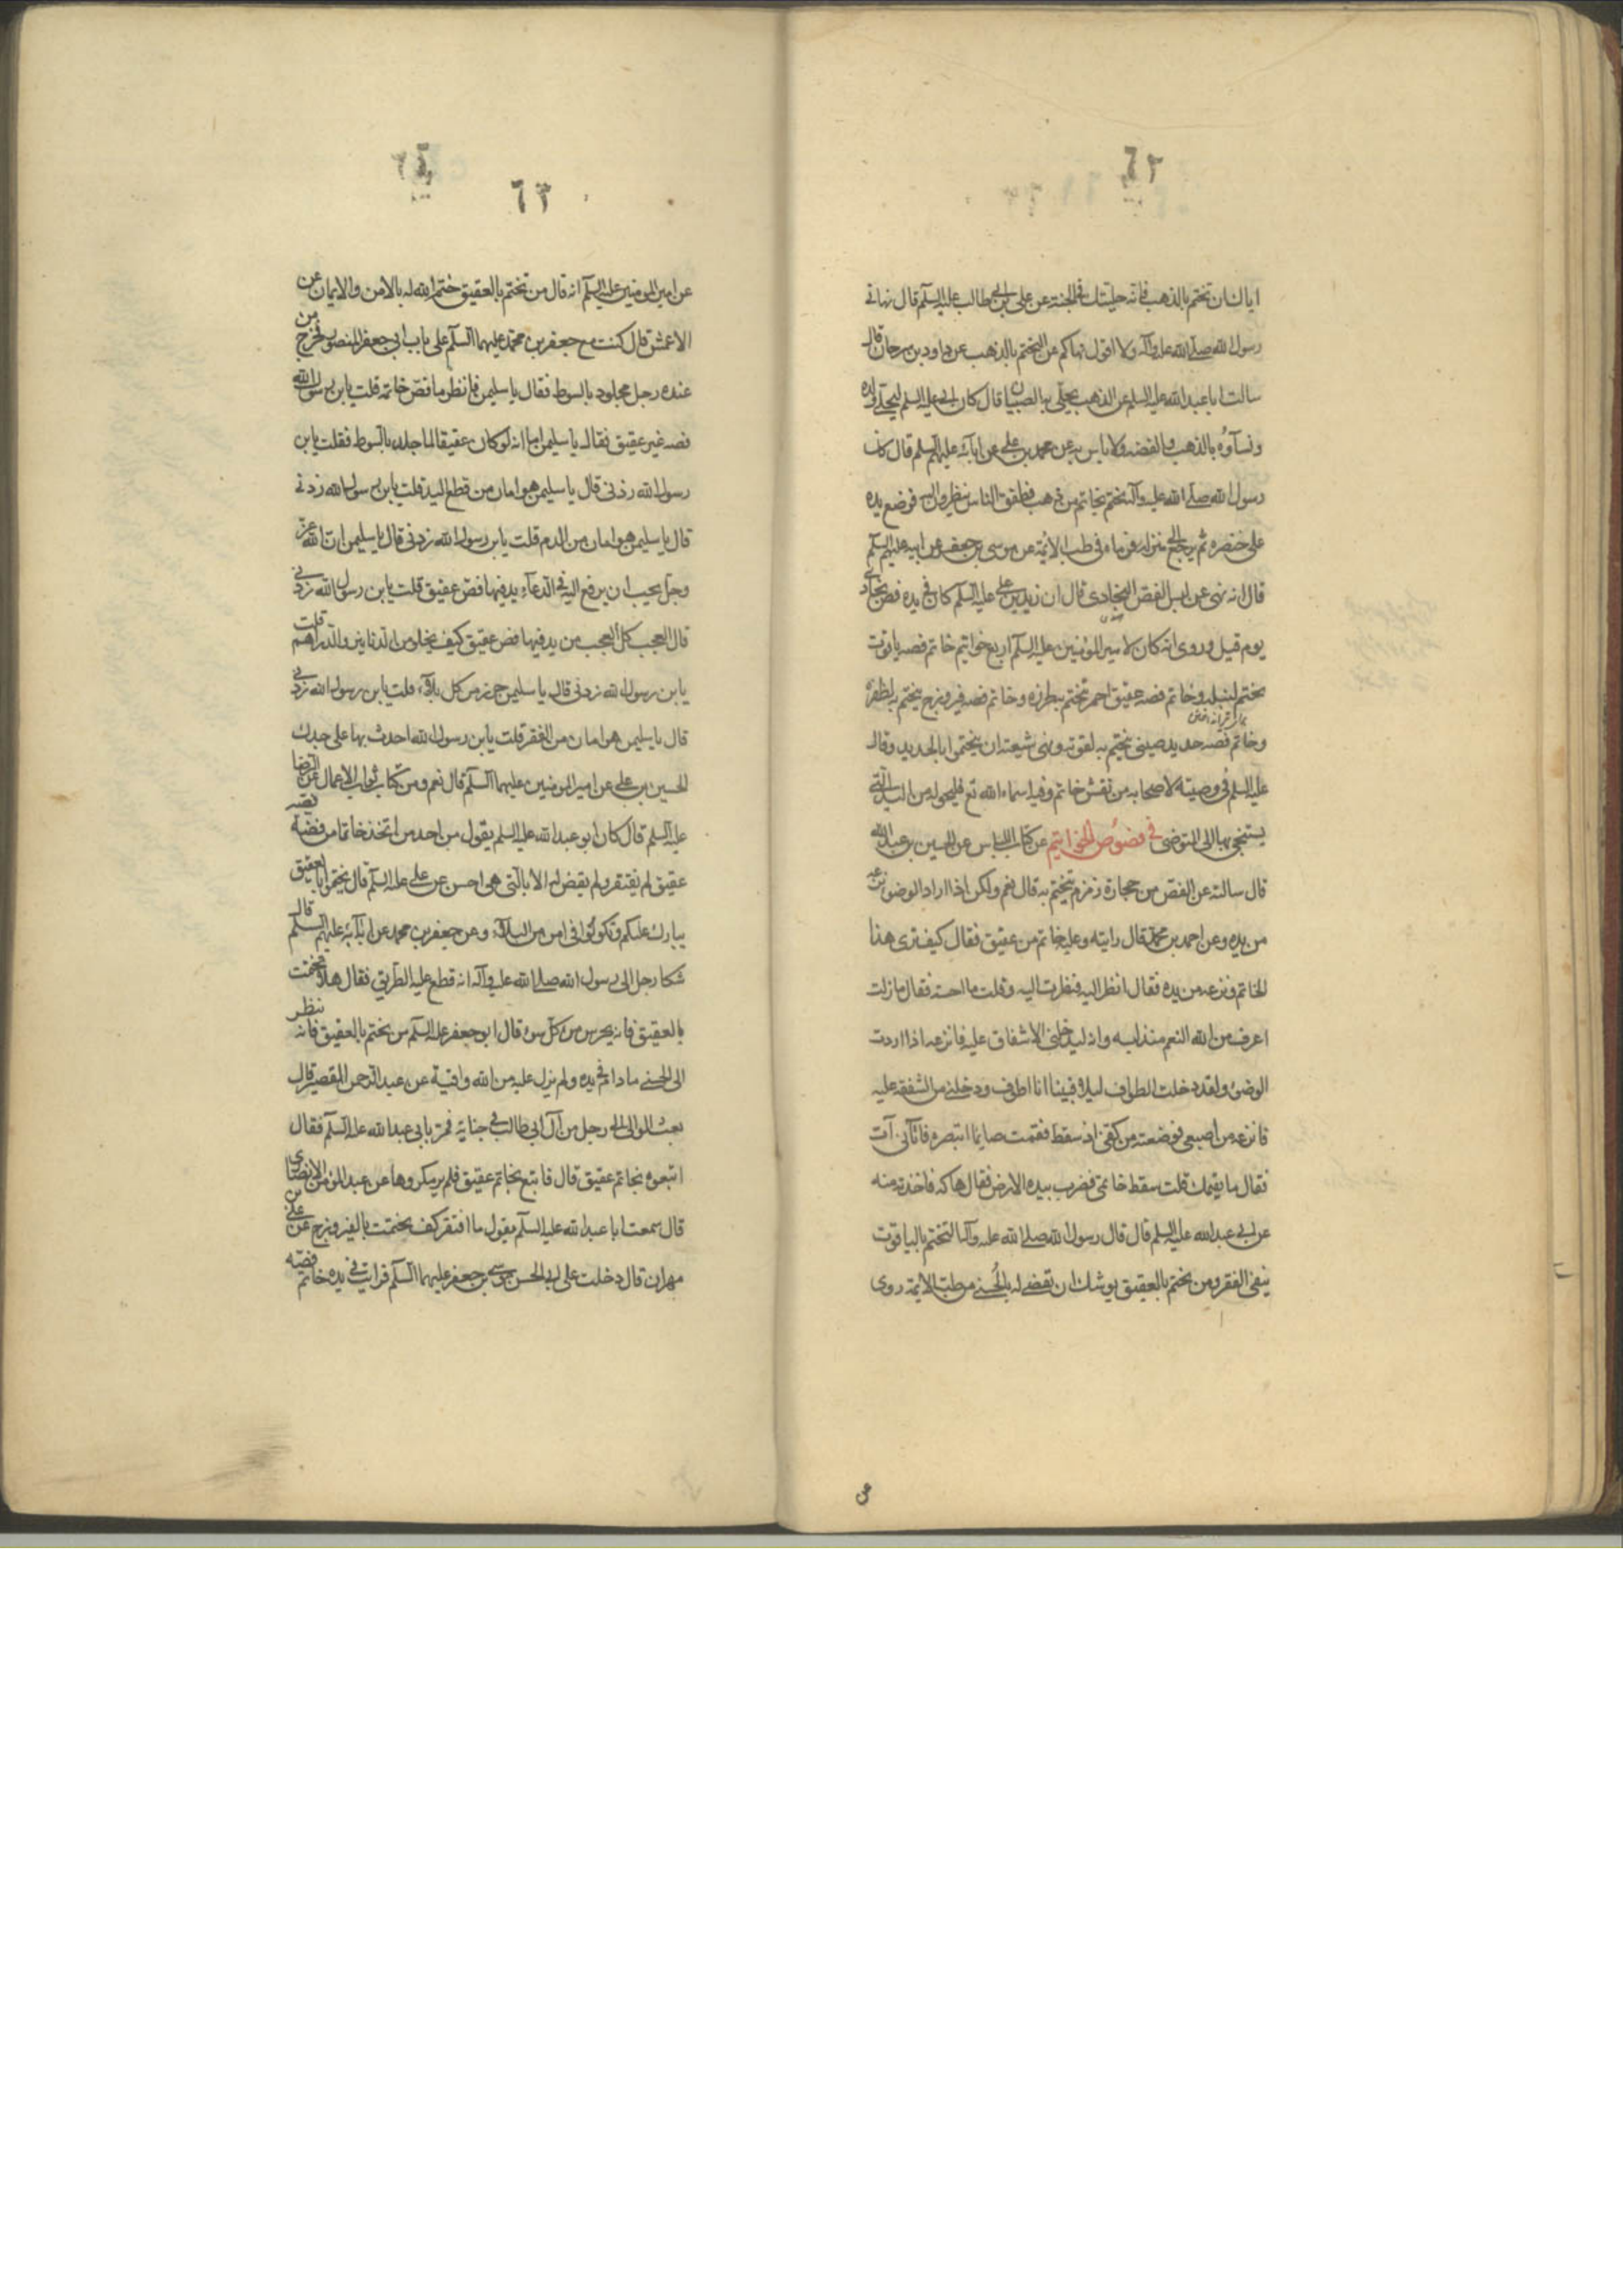 ٦٢
اياك ان تختم بالذهب فانه حليتك في الجنة عن علي بن ابي طالب عليه السلم قال نهاني
رسول الله صلى الله عليه وآله ولا اقول نهاكم عن التختم بالذهب عن داود بن سرحان قال
سالت ابا عبد الله عليه السلم عن الذهب يحلى به الصبيان قال كان ابي عليه السلم ليحلي ولده
ونسآؤه بالذهب والفضه ولا باس به عن محمد بن علي عن ابائه عليهم السلم قال كان
رسول الله صلى الله عليه وآله تختم بخاتم من ذهب فطفق الناس ينظرون اليه فوضع يده
على خنصره ثم رجع الى منزله فرماه في طب الائمة عن موسى بن جعفر عن ابيه عليهم السلم
قال انه نهى عن لبس الفص النجادى قال ان زيد بن علي عليه السلم كان في يده فص نجادى
يوم قتل وروى انه كان لامير المؤمنين عليه السلم اربع خواتيم خاتم فصه ياقوت
يختم لنبله وخاتم فصه عقيق احمر تختم بطرزه وخاتم فصه فيروزج يختم به لظفره
وخاتم فصه حديد صيني يختم به لقوته ونهى شيعته ان يختموا بالحديد وقال
عليه السلم في وصيته لاصحابه من نقش خاتم وفيه اسماء الله تع فليحوله من اليد التي
يستنجي بها الى المتوضى في فصوص الخواتيم عن كتاب اللباس عن الحسين بن عبد الله
قال سالته عن الفص من حجارة زمزم يختم به قال نعم ولكن اذا اراد الوضو نزعه
من يده وعن احمد بن محمد قال رايته وعليه خاتم من عقيق فقال كيف ترى هذا
الخاتم ونزعه من يده فقال انظر اليه فنظرت اليه وقلت ما احسنه فقال ما زلت
اعرف من الله النعم منذ لبسه وانه ليدخلني الاشفاق عليه فانزعه اذا اردت
الوضوء ولقد دخلت الطواف ليلا فبينا انا اطوف ودخلني من الشفقه عليه
فانزعه من اصبعي فوضعته من كفي اذ سقط فقمت صايما ابتصره فاتاني آت
فقال ما يقيمك قلت سقط خاتمي فضرب بيده الارض فقال هاكه فاخذته منه
عن ابي عبد الله عليه السلم قال قال رسول الله صلى الله عليه وآله التختم بالياقوت
ينفي الفقر ومن يختم بالعقيق يوشك ان يقضي له بالحُسنى من طب الايمة روى
عن
٦٣
عن امير المومنين عليه السلم انه قال من تختم بالعقيق ختم الله له بالامن والايمان عن
الاعمش قال كنت مع جعفر بن محمد عليهما السلم على باب ابي جعفر المنصور فخرج من
عنده رجل مجلود بالسوط فقال يا سليمن فانظر ما فص خاتمه قلت يا بن رسول الله
فصه غير عقيق فقال يا سليمن اما انه لو كان عقيقا لما جلد بالسوط فقلت يا بن
رسول الله زدني قال يا سليمن هو امان من قطع اليد قلت يا بن رسول الله زدني
قال يا سليمن هو امان من الدم قلت يا بن رسول الله زدني قال يا سليمن ان الله عز
وجل يحب ان يرفع اليه في الدعاء يد فيها فص عقيق قلت يا بن رسول الله زدني
قال العجب كل العجب من يد فيها فص عقيق كيف يخلو من الدنانير والدراهم قلت
يا بن رسول الله زدني قال يا سليمن حرز من كل بلاء قلت يا بن رسول الله زدني
قال يا سليمن هو امان من الفقر قلت يا بن رسول الله احدث بها على جدك
الحسين بن علي عن امير المومنين عليهما السلم قال نعم ومن كتاب ثواب الاعمال عن الرضا
عليه السلم قال كان ابو عبد الله عليه السلم يقول من احد من اتخذ خاتما من فضة فصه
عقيق لم يفتقر ولم يقض له الا بالتي هي احسن عن علي عليه السلم قال تختموا بالعقيق
يبارك عليكم وتكونوا في امن من البلآء وعن جعفر بن محمد عن ابآئه عليهم السلم قال
شكا رجل الى رسول الله صلى الله عليه وآله انه قطع عليه الطريق فقال هلا تختمت
بالعقيق فانه يحرس من كل سوء قال ابو جعفر عليه السلم من يختم بالعقيق فانه ينظر
الى الحسنى ما دام في يده ولم يزل عليه من الله واقية عن عبد الرحمن القصير قال
بعث الوالي الى رجل من آل ابي طالب في جناية فمر بابي عبد الله عليه السلم فقال
اتبعوه بخاتم عقيق قال فاتبع بخاتم عقيق فلم ير مكروها عن عبد المؤمن الانصارى
قال سمعت ابا عبد الله عليه السلم يقول ما افتقر كف يختمت بالفيروزج عن علي بن
مهران قال دخلت على ابي الحسن موسى بن جعفر عليهما السلم فرايت في يده خاتم فصّه